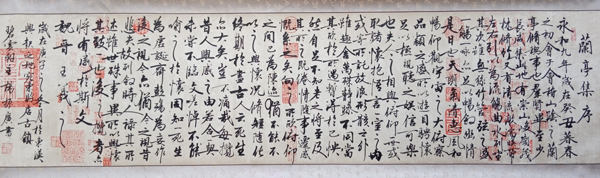 蘭亭集序
永和九年歲在癸丑暮春
之初會于會稽山陰之蘭
亭脩禊事也羣賢畢至少
長咸集此地有崇山峻嶺茂
林脩竹又有清流激湍映帶
左右引以為流觴曲水列坐
其次雖無絲竹管弦之盛
一觴一詠亦足以暢敘幽情
是日也天朗氣清惠風和
暢仰觀宇宙之大俯察
品類之盛所以遊目騁懷
足以極視聽之娛信可樂
也夫人之相與俯仰一世或
取諸懷抱悟言一室之內
或因寄所託放浪形骸之外
雖趣舍萬殊靜躁不同當
其欣於所遇暫得於己快
然自足不知老之將至及
其所之既倦情隨事遷感
慨係之矣向之所欣俯仰
之間已為陳迹猶不能不
以之興懷況脩短隨化
終期於盡古人云死生
亦大矣豈不痛哉每攬
昔人興感之由若合一契
未嘗不臨文嗟悼不能
喻之於懷固知一死生
為虛誕齊彭殤為妄作
後之視今亦猶今之視昔
悲夫故列敘時人錄其所
述雖世殊事異所以興懷
其致一也後之覽者亦
將有感於斯文
王羲之